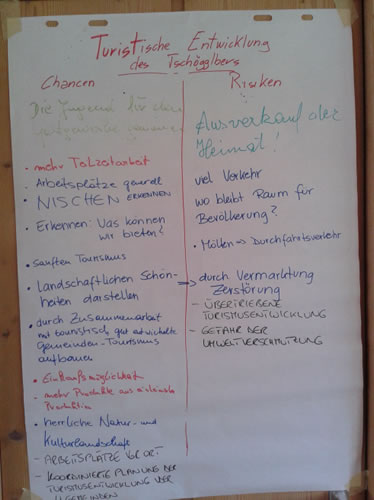 Turistische Entwicklung
des Tschögglbergs
Chancen
Die Jugend für den
gewinnen
• mehr Teilzeitarbeit
• Arbeitsplätze generell
• NISCHEN ERKENNEN
• Erkennen: Was können
wir bieten?
• sanften Tourismus
• Landschaftlichen Schön-
heiten darstellen
• durch Zusammenarbeit
mit touristisch gut entwickelte
Gemeinden - Tourismus
aufbauen
• Einkaufsmöglichkeit
- mehr Produkte aus
Produktion
• herrliche Natur- und
Kulturlandschaft
- ARBEITSPLÄTZE VOR ORT
- KOORDINIERTE PLANUNG DER
TURISMUSENTWICKLUNG DER
GEMEINDEN
Risiken
Ausverkauf der
Heimat!
viel Verkehr
wo bleibt Raum für
Bevölkerung?
• Mölten => Durchfahrtsverkehr
→ durch Vermarktung
Zerstörung
- ÜBERTRIEBENE
TURISMUSENTWICKLUNG
- GEFAHR DER
UMWELTVERSCHMUTZUNG